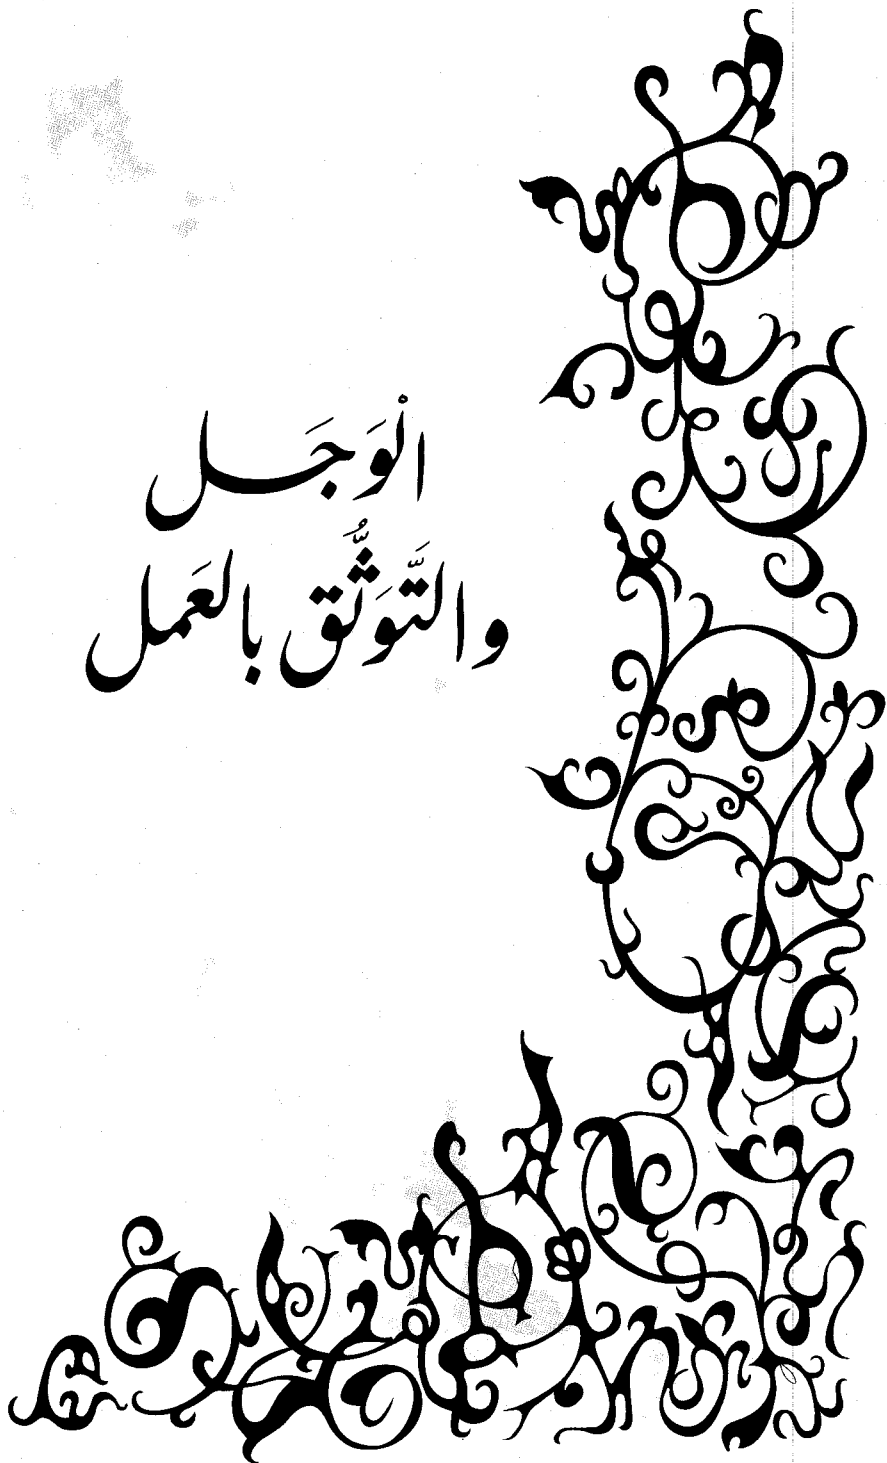 الْوَجَل
والتَّوَثُّق بالعَمل